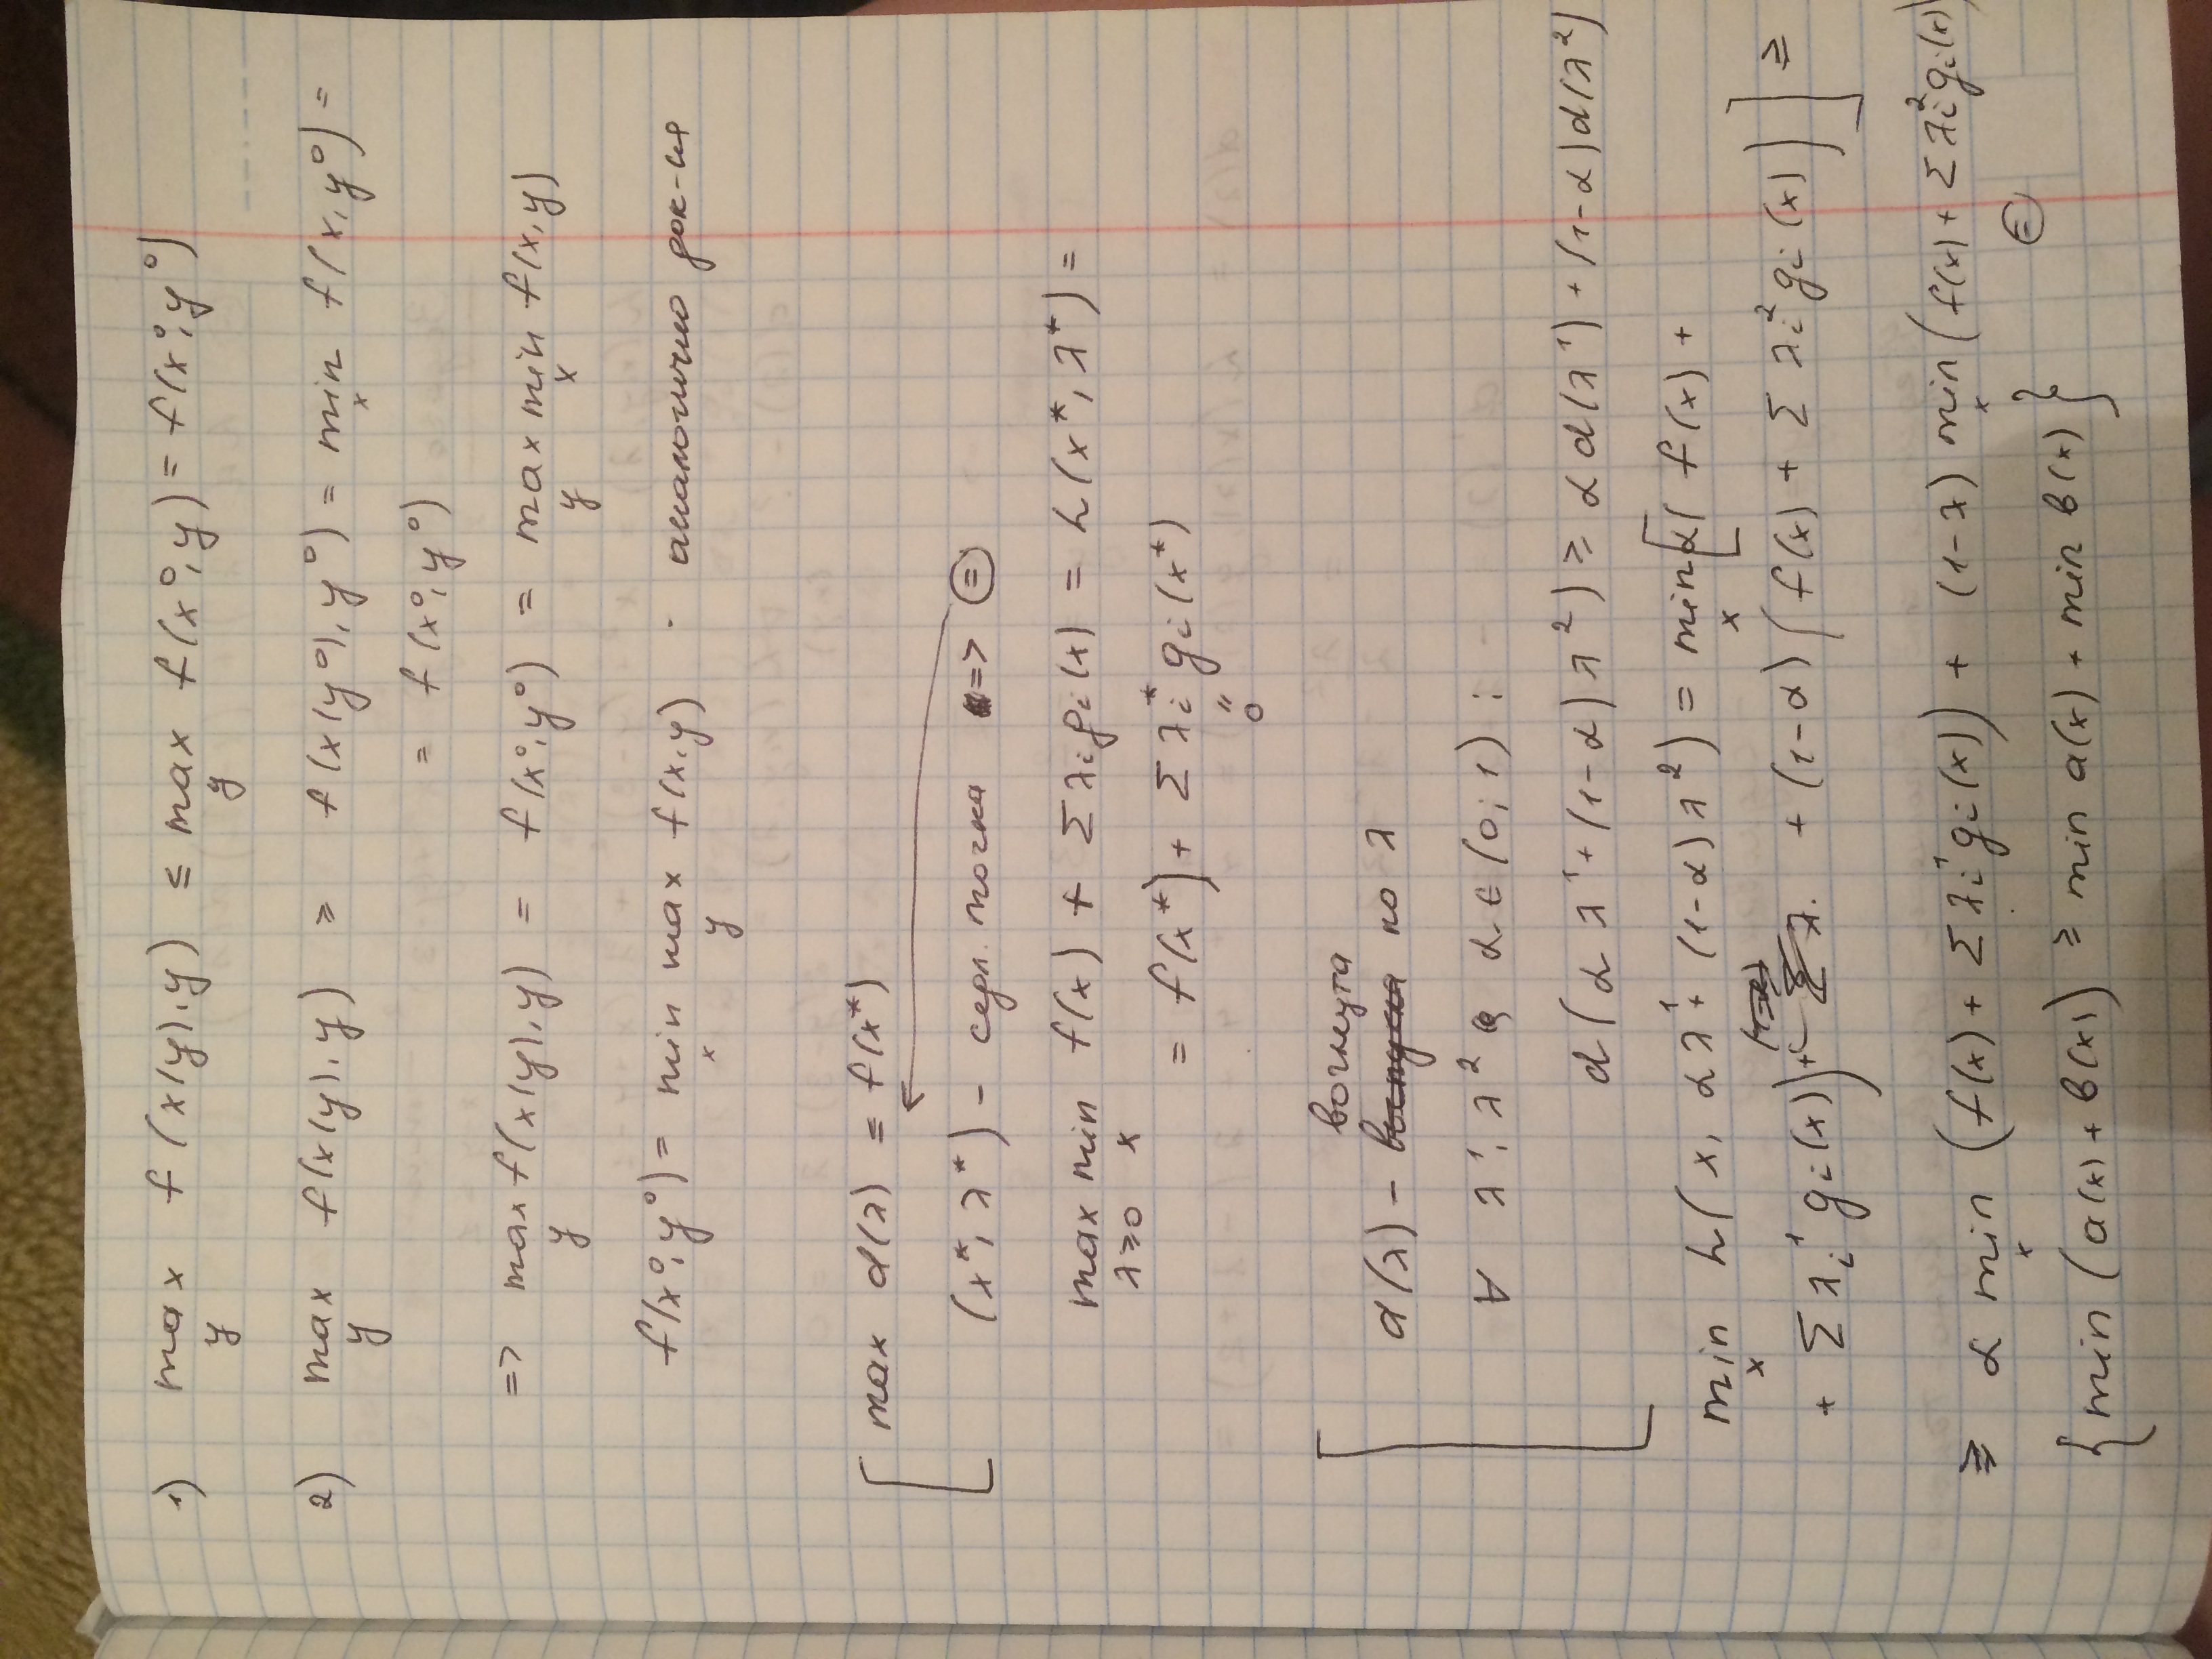 1) max_y f(x(y),y) ≤ max_y f(x⁰,y) = f(x⁰,y⁰)
2) max_y f(x(y),y) ≥ f(x(y⁰),y⁰) = min_x f(x,y⁰) =
= f(x⁰,y⁰)
=> max_y f(x(y),y) = f(x⁰,y⁰) = max_y min_x f(x,y)
f(x⁰,y⁰) = min_x max_y f(x,y) · аналогично док-ся
[ max d(λ) = f(x*)
(x*, λ*) - седл. точка => ⊜
max_{λ≥0} min_x f(x) + Σ λ_i g_i(x) = h(x*, λ*) =
= f(x*) + Σ λ_i* g_i(x*)
"0
вогнута
d(λ) - выпукла по λ
∀ λ¹, λ² α ∈ (0;1) :
d(α λ¹ + (1-α) λ²) ≥ α d(λ¹) + (1-α) d(λ²)
min_x h(x, αλ¹ + (1-α)λ²) = min_x [α( f(x) +
+ Σ λ_i¹ g_i(x)) + (1-α)(f(x) + Σ λ_i² g_i(x))] ≥
≥ α min_x (f(x) + Σ λ_i¹ g_i(x)) + (1-λ) min_x (f(x) + Σ λ_i² g_i(x))
⊜
{ min (a(x) + b(x)) ≥ min a(x) + min b(x) }